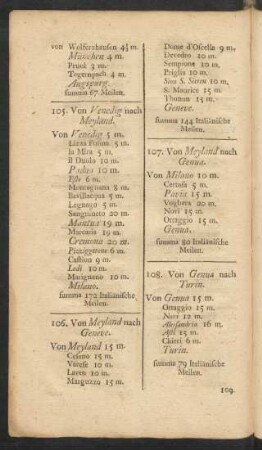 von Wolfertshausen 4½ m.
München 4 m.
Pruck 3 m.
Tegernbach 4 m.
Augspurg.
summa 67 Meilen.
105. Von Venedig nach
Meyland.
Von Venedig 5 m.
Lizza Fusina 5 m.
la Mira 5 m.
il Duolo 10 m.
Padua 10 m.
Este 6 m.
Montagnana 8 m.
Bevilaequa 5 m.
Legnago 5 m.
Sanguineto 20 m.
Mantua 19 m.
Marcaria 19 m.
Cremona 20 m.
Picziggitone 6 m.
Castion 9 m.
Lodi 10 m.
Marignano 10 m.
Milano.
summa 172 Italiänische
Meilen.
106. Von Meyland nach
Geneve.
Von Meyland 15 m.
Cesano 15 m.
Varese 10 m.
Laveno 10 m.
Margozzo 15 m.
Domo d'Oscella 9 m.
Devedro 10 m.
Sempione 10 m.
Briglio 10 m.
Sion S. Sitten 10 m.
S. Maurice 15 m.
Thonon 15 m.
Geneve.
summa 144 Italiänische
Meilen.
107. Von Meyland nach
Genua.
Von Milano 10 m.
Certosa 5 m.
Pavia 15 m.
Voghera 20 m.
Novi 15 m.
Ottaggio 15 m.
Genua.
summa 80 Italiänische
Meilen.
108. Von Genua nach
Turin.
Von Genua 15 m.
Ottaggio 15 m.
Novi 12 m.
Alessandria 16 m.
Asti 15 m.
Chieri 6 m.
Turin.
summa 79 Italiänische
Meilen.
109.